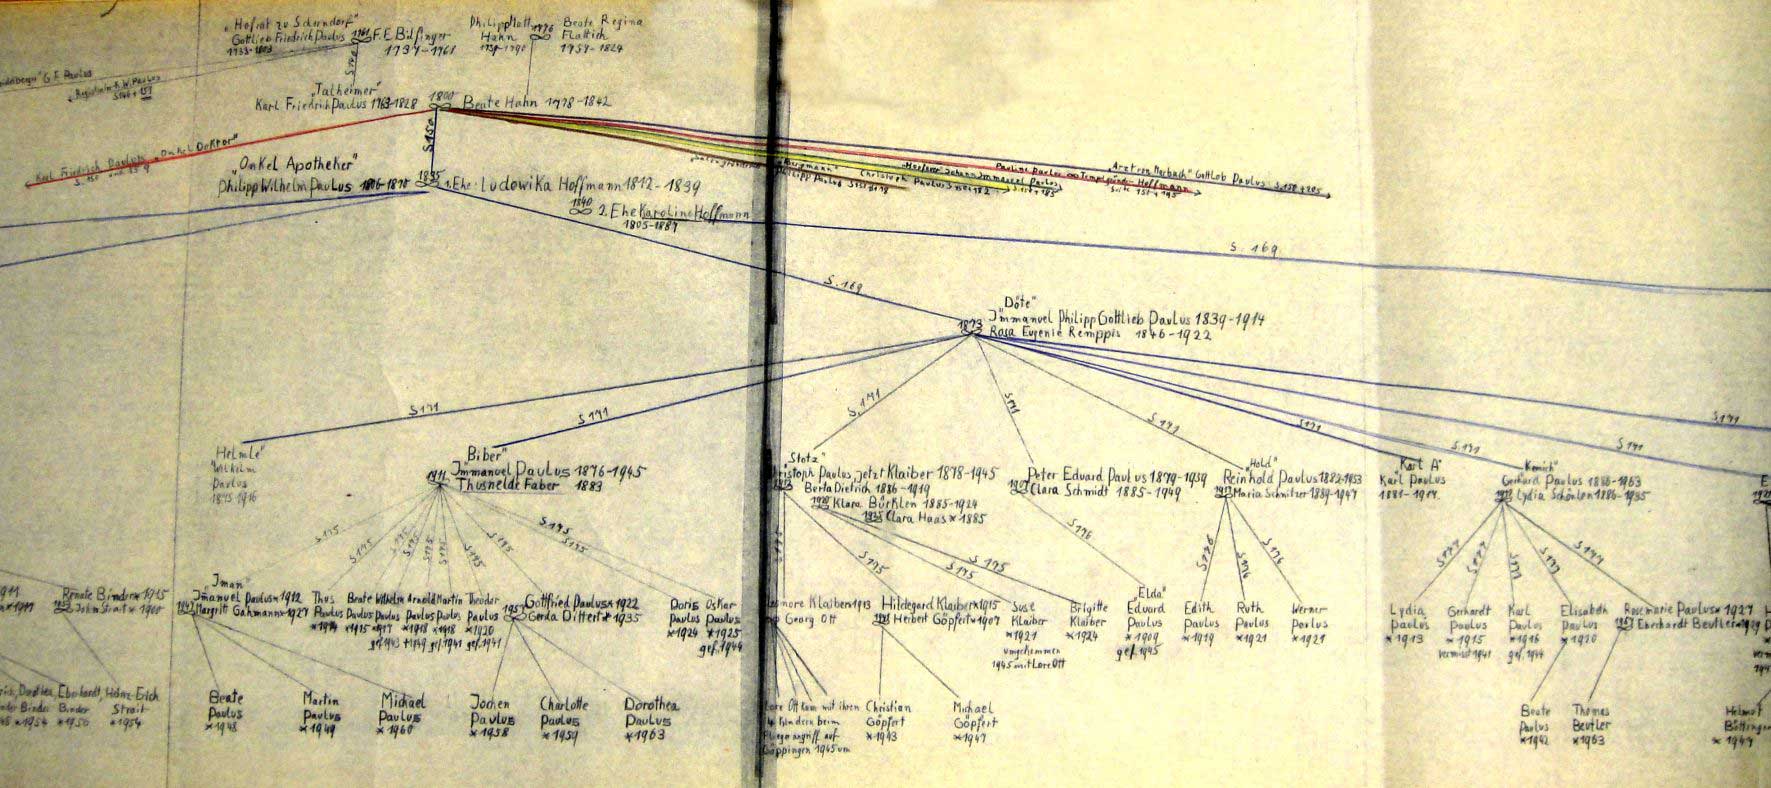 „Hofrat zu Schorndorf"
Gottlieb Friedrich Paulus 1761 F.E. Bilfinger
1737-1768
Hahn 1776 Beate Regina
Flattich
1757-1824
G.F. Paulus
S. 140
"Talheimer"
Karl Friedrich Paulus 1763-1828 1800 Beate Hahn 1778-1842
S. 150
Karl Friedrich Paulus „Onkel Doktor"
"Onkel Apotheker"
Philipp Wilhelm Paulus 1835 1. Ehe: Ludowika Hoffmann 1812-1839
1840 2. Ehe Karoline Hoffmann
1805-1887
Philipp Paulus
Christoph Paulus
Immanuel Paulus
Pauline Paulus ∞ Tempelgründer Hoffmann
Arzt von Marbach" Gottlob Paulus
S. 169
S. 169
"Döte"
Immanuel Philipp Gottlieb Paulus 1839-1914
1873 Rosa Eugenie Remppis 1846-1922
S 171
S 171
S. 171
S 171
S 171
S 171
S 171
S 171
S 171
Helmle"
Wilhelm
Paulus
1875-1916
"Biber"
Immanuel Paulus 1876-1945
1911 Thusnelde Faber 1883
"Stotz"
Christoph Paulus, jetzt Klaiber 1878-1945
Berta Dietrich 1886-1919
1920 Klara Börklen 1885-1924
1925 Clara Haas * 1885
Peter Eduard Paulus 1879-1959
Clara Schmidt 1885-1949
"Hold"
Reinhold Paulus 1882-1953
Maria Schnitzer 1889-1947
"Karl A"
Karl Paulus
"Kemich"
Gerhard Paulus 1886-1963
Lydia Schönlen
S 175
S 175
S 175
S 175
S 175
S 175
S 175
S 175
S 175
S 175
S 175
S 175
S 175
S 176
S 176
S 176
S 176
S 177
S 177
S 177
S 177
S 177
Renate Binder * 1915
John Strait * 1900
"Iman"
Immanuel Paulus * 1912
Margritt Gahmann * 1927
Thus
Paulus
* 1914
Beate
Paulus
* 1915
Wilhelm
Paulus
* 1917
gef. 1943
Arnold
Paulus
* 1918
Martin
Paulus
* 1918
gef. 1941
Theodor
Paulus
* 1920
gef. 1941
1957 Gottfried Paulus * 1922
Gerda Dittert * 1935
Doris
Paulus
* 1924
Oskar
Paulus
* 1925
gef. 1944
Klaiber * 1913
Georg Ott
Hildegard Klaiber * 1915
Herbert Göpfert * 1907
Suse
Klaiber
* 1921
umgekommen
1945 mit Lore Ott
Brigitte
Klaiber
* 1924
"Elda"
Eduard
Paulus
* 1909
gef. 1945
Edith
Paulus
* 1919
Ruth
Paulus
* 1921
Werner
Paulus
* 1921
Lydia
Paulus
* 1913
Gerhardt
Paulus
* 1915
vermisst 1941
Karl
Paulus
* 1916
gef. 1944
Elisabeth
Paulus
* 1920
Rosemarie Paulus * 1927
Eberhardt Beutler
Binder
* 1954
Eberhardt
Binder
* 1950
Heinz-Erich
Strait
* 1954
Beate
Paulus
* 1948
Martin
Paulus
* 1949
Michael
Paulus
* 1960
Jochen
Paulus
* 1958
Charlotte
Paulus
* 1959
Dorothea
Paulus
* 1963
Lore Ott kam mit ihren
4 Kindern beim
Fliegerangriff auf
Göppingen 1945 um
Christian
Göpfert
* 1943
Michael
Göpfert
* 1947
Beate
Paulus
* 1942
Thomas
Beutler
* 1963
Helmut
* 1947